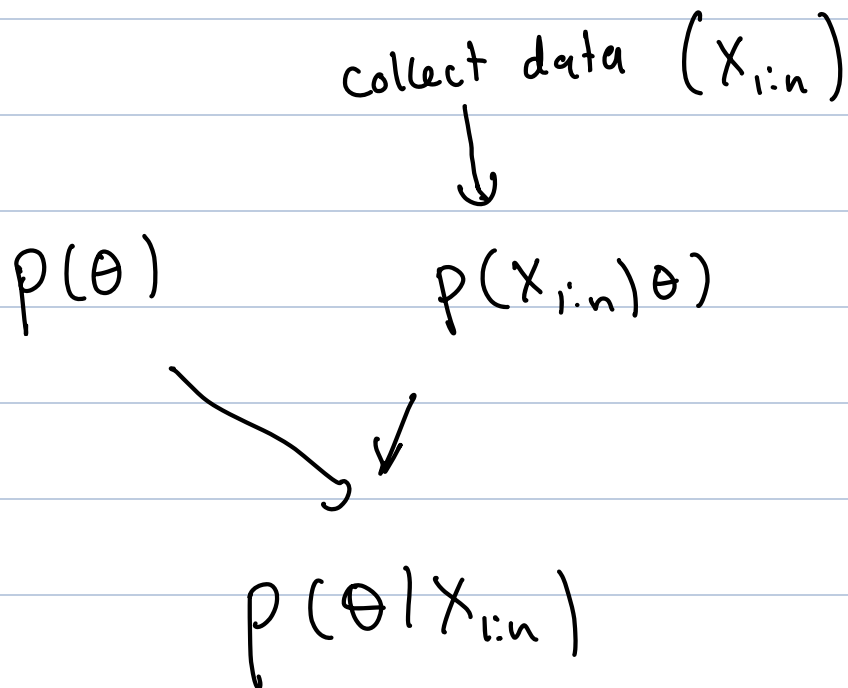 collect data (X₁:ₙ)
p(θ) p(X₁:ₙ|θ)
p(θ|X₁:ₙ)